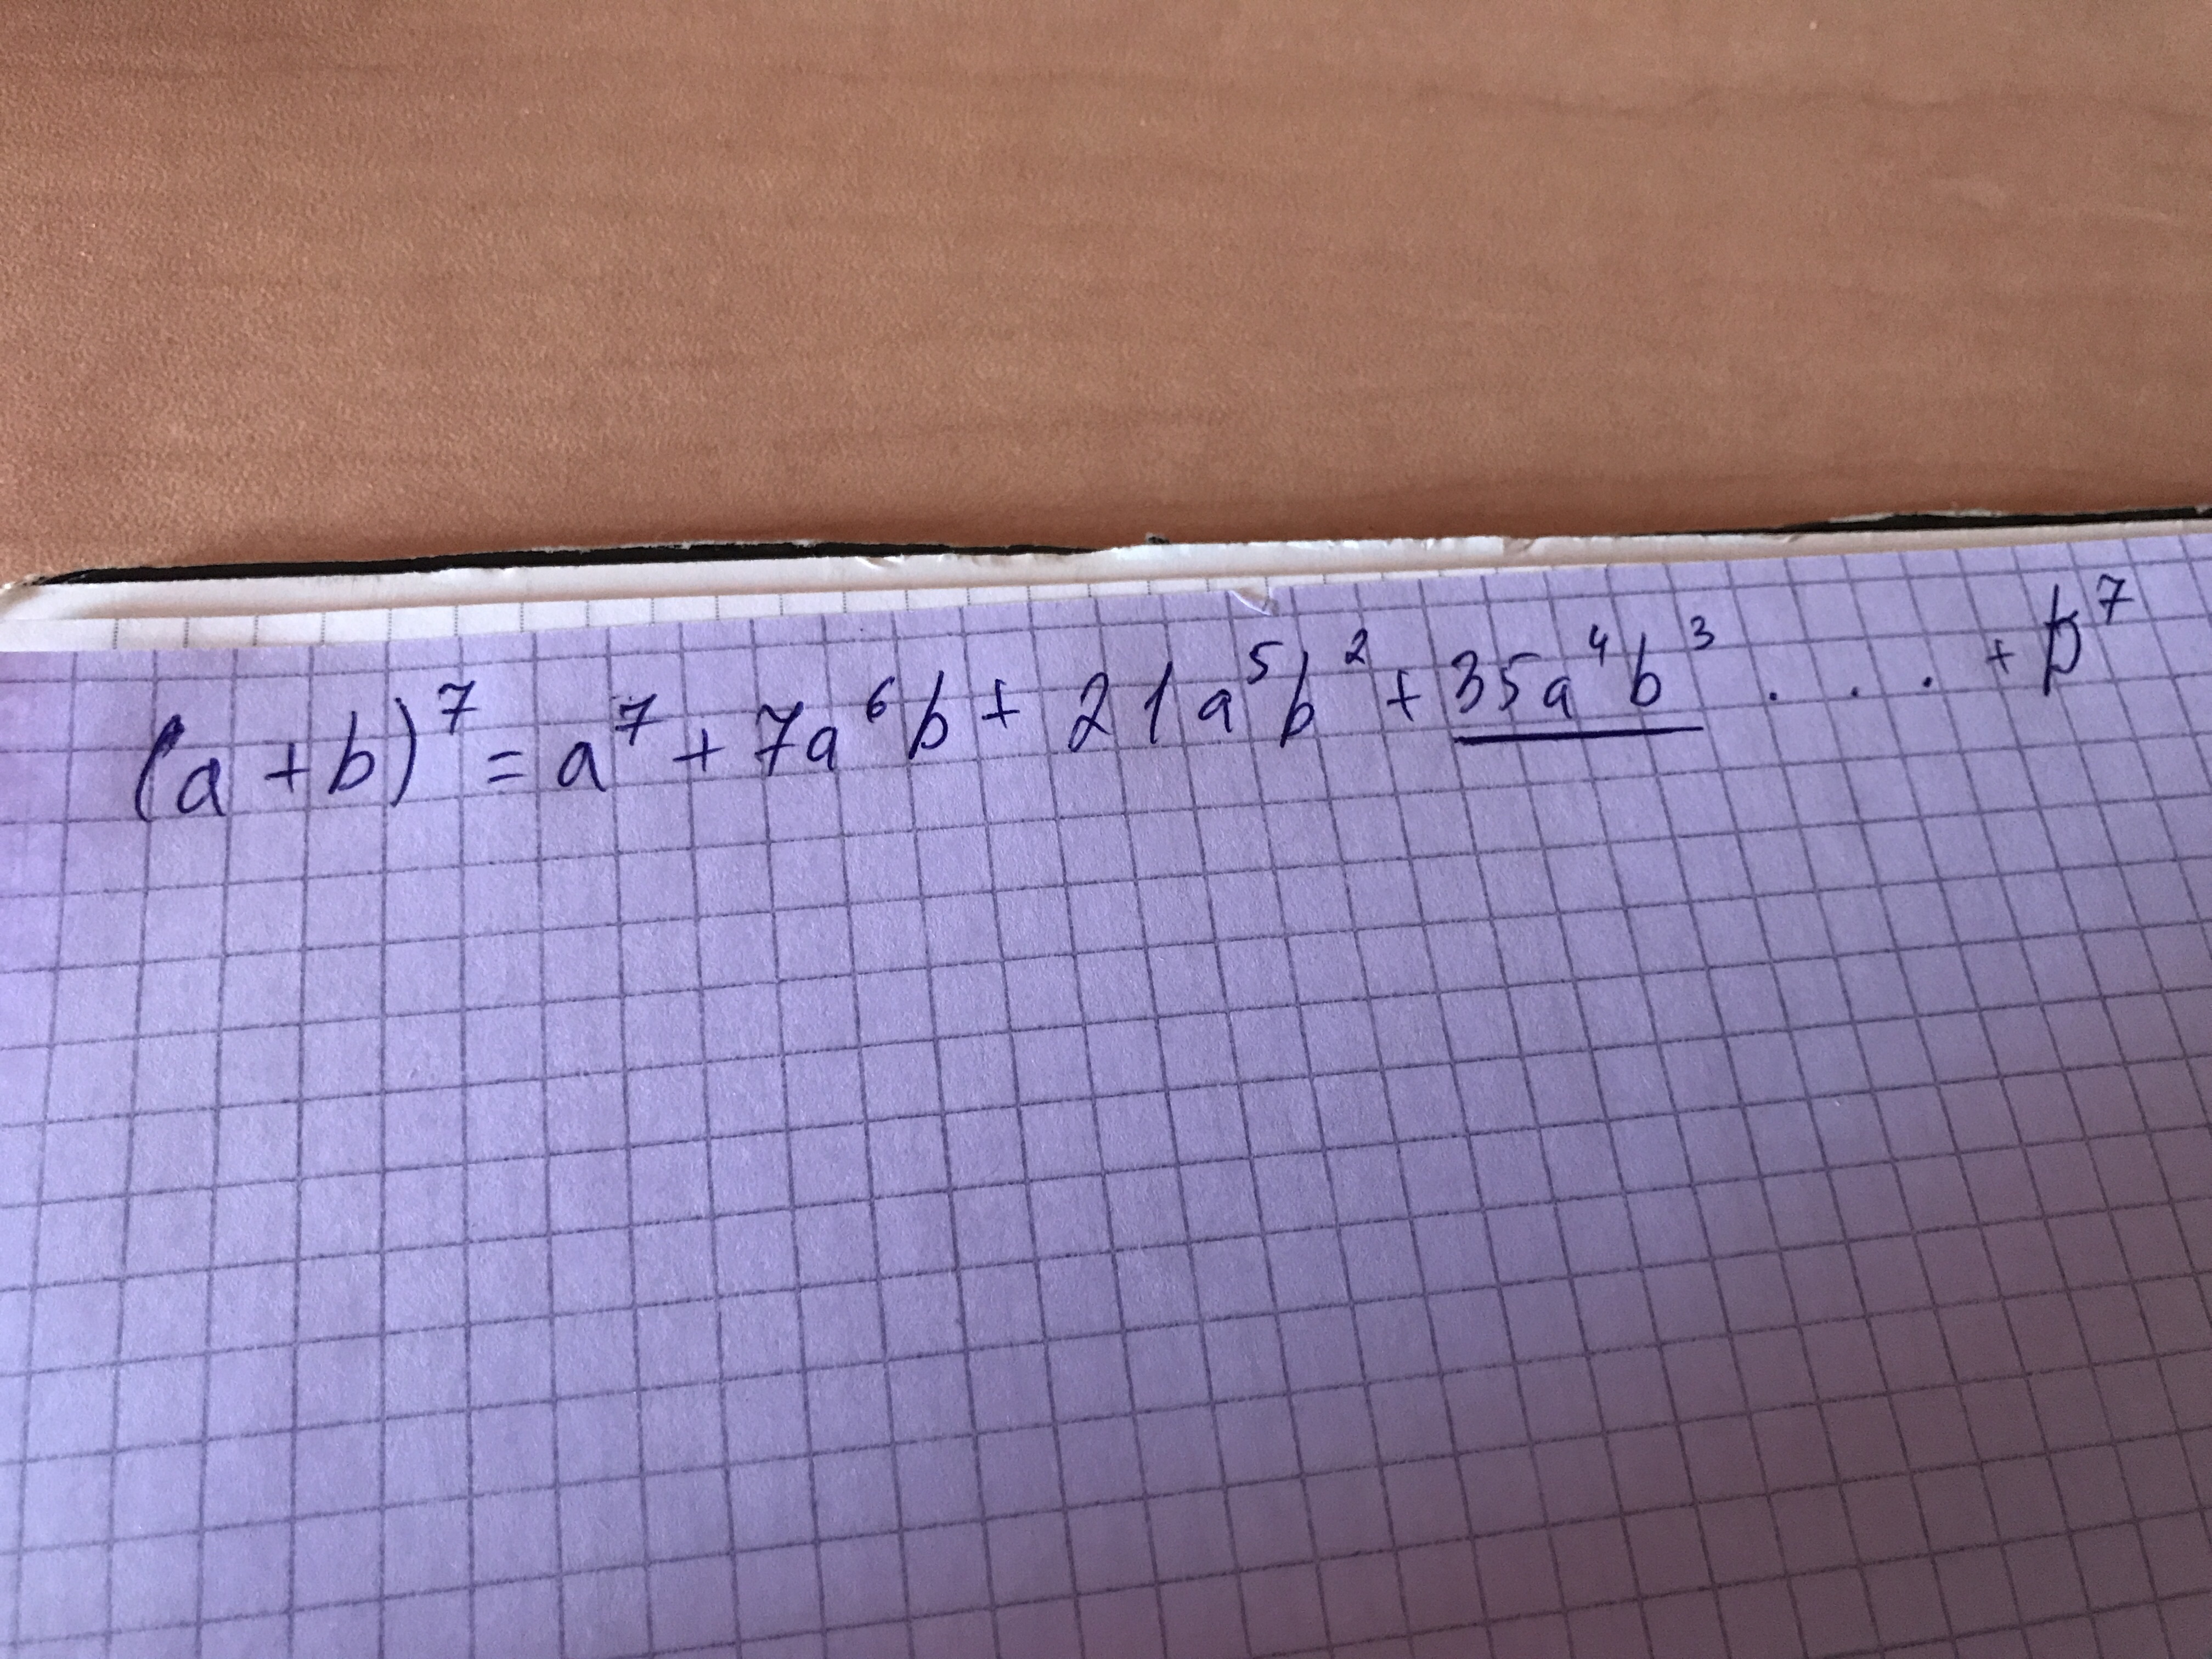 (a+b)⁷ = a⁷ + 7a⁶b + 21a⁵b² + 35a⁴b³ . . . + b⁷